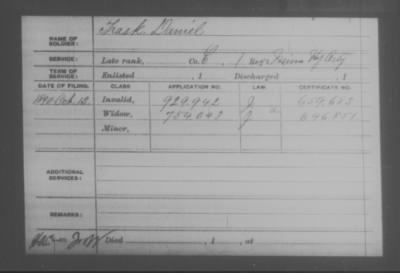 NAME OF SOLDIER: Trask, Daniel
SERVICE: Late rank, Co. E, 1 Reg't Maine Hy Arty
TERM OF SERVICE: Enlisted , 1 Discharged , 1
DATE OF FILING. CLASS. APPLICATION NO. LAW. CERTIFICATE NO.
1890 Oct. 12 Invalid, 929.942 J
Widow, 754.043 J 646.851
Minor,
ADDITIONAL SERVICES:
REMARKS:
Died , 1 , at